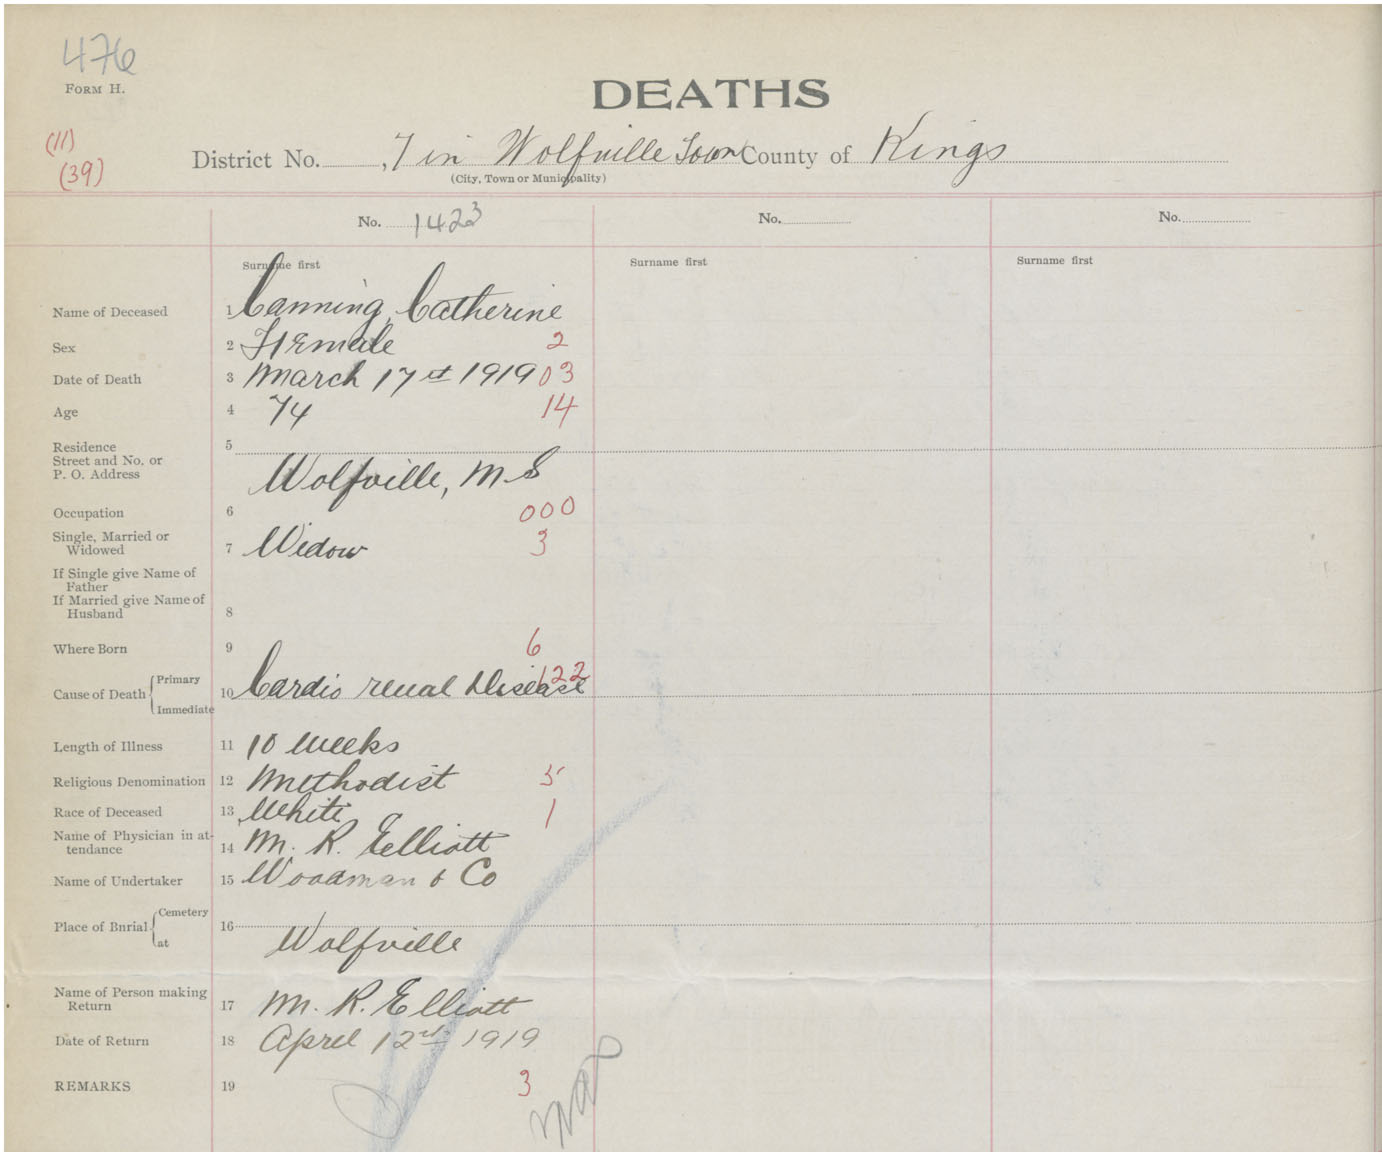 476
FORM H.
DEATHS
(11)
(39)
District No. 7 in Wolfville Town County of Kings
(City, Town or Municipality)
No. 1423
No.
No.
Surname first
Surname first
Surname first
Name of Deceased 1 Canning, Catherine
Sex 2 Female 2
Date of Death 3 March 17st 1919 03
Age 4 74 14
Residence 5
Street and No. or
P. O. Address Wolfville, N.S
Occupation 6 000
Single, Married or
Widowed 7 Widow 3
If Single give Name of
Father
If Married give Name of
Husband 8
Where Born 9 6
122
Cause of Death Primary
10 Cardio renal Disease
Immediate
Length of Illness 11 10 weeks
Religious Denomination 12 Methodist 5
Race of Deceased 13 White 1
Name of Physician in at-
tendance 14 M. R. Elliott
Name of Undertaker 15 Woodman & Co
Place of Burial Cemetery 16
at Wolfville
Name of Person making
Return 17 M. R. Elliott
Date of Return 18 April 12nd 1919
REMARKS 19 3